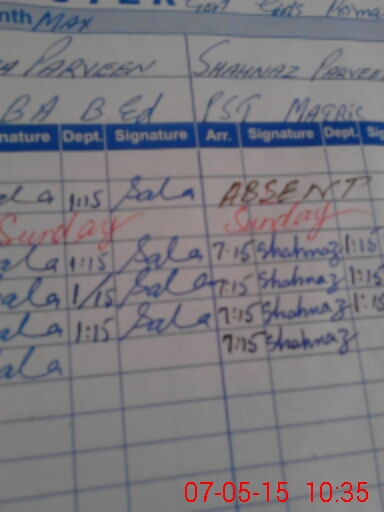 nth MAX
A PARVEEN SHAHNAZ PARVEE
BA B Ed PST MATRIC
nature Dept. Signature Arr. Signature Dept. Sig
ala 1:15 Sala ABSENT
Sunday Sunday
ala 1:15 Sala 7:15 Shahnaz 1:15
ala 1/15 Sala 7:15 Shahnaz 1:15
ala 1:15 Sala 7:15 Shahnaz 1:1
ala 7:15 Shahnaz
07-05-15 10:35